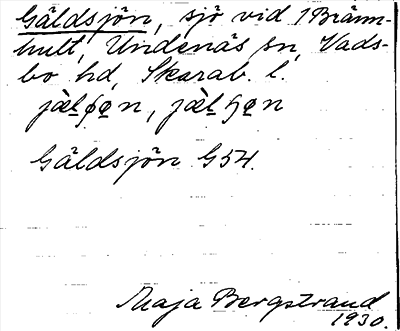 Gäldsjön, sjö vid 1 Bränn-
hult, Undenäs sn, Vads-
bo hd, Skarab. l.
Gäldsjön G54.
Maja Bergstrand
1930.